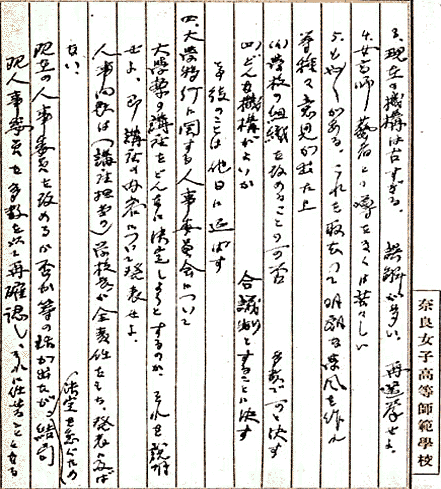 3、現在の機構は古すぎる、誤解が多い、再選挙せよ、
4、女高師藝者の噂をきくは苦々しい
5、もやしがある、これを取去って明朗な学風を作れ
等種々意見が出た上
(イ)学校の組織を改めることの可否 多数で可と決す
(ロ)どんな機構がよいか 合議制とすることに決す
其後のことは他日に延ばす
四、大学移行に関する人事委員会について
大学案の講座をどんなに決定しようとするのか、それを説明
せよ、即講座の内容について発表せよ、
人事内に於ては(講座担当の)学校長が全責任をもち、発表に及ば
ない、(決定を急ぐため
現在の人事委員を改めるか否か等の話が出たが、結局
現人事委員を多数を以て再確認し、それに任せることとなる
奈良女子高等師範學校